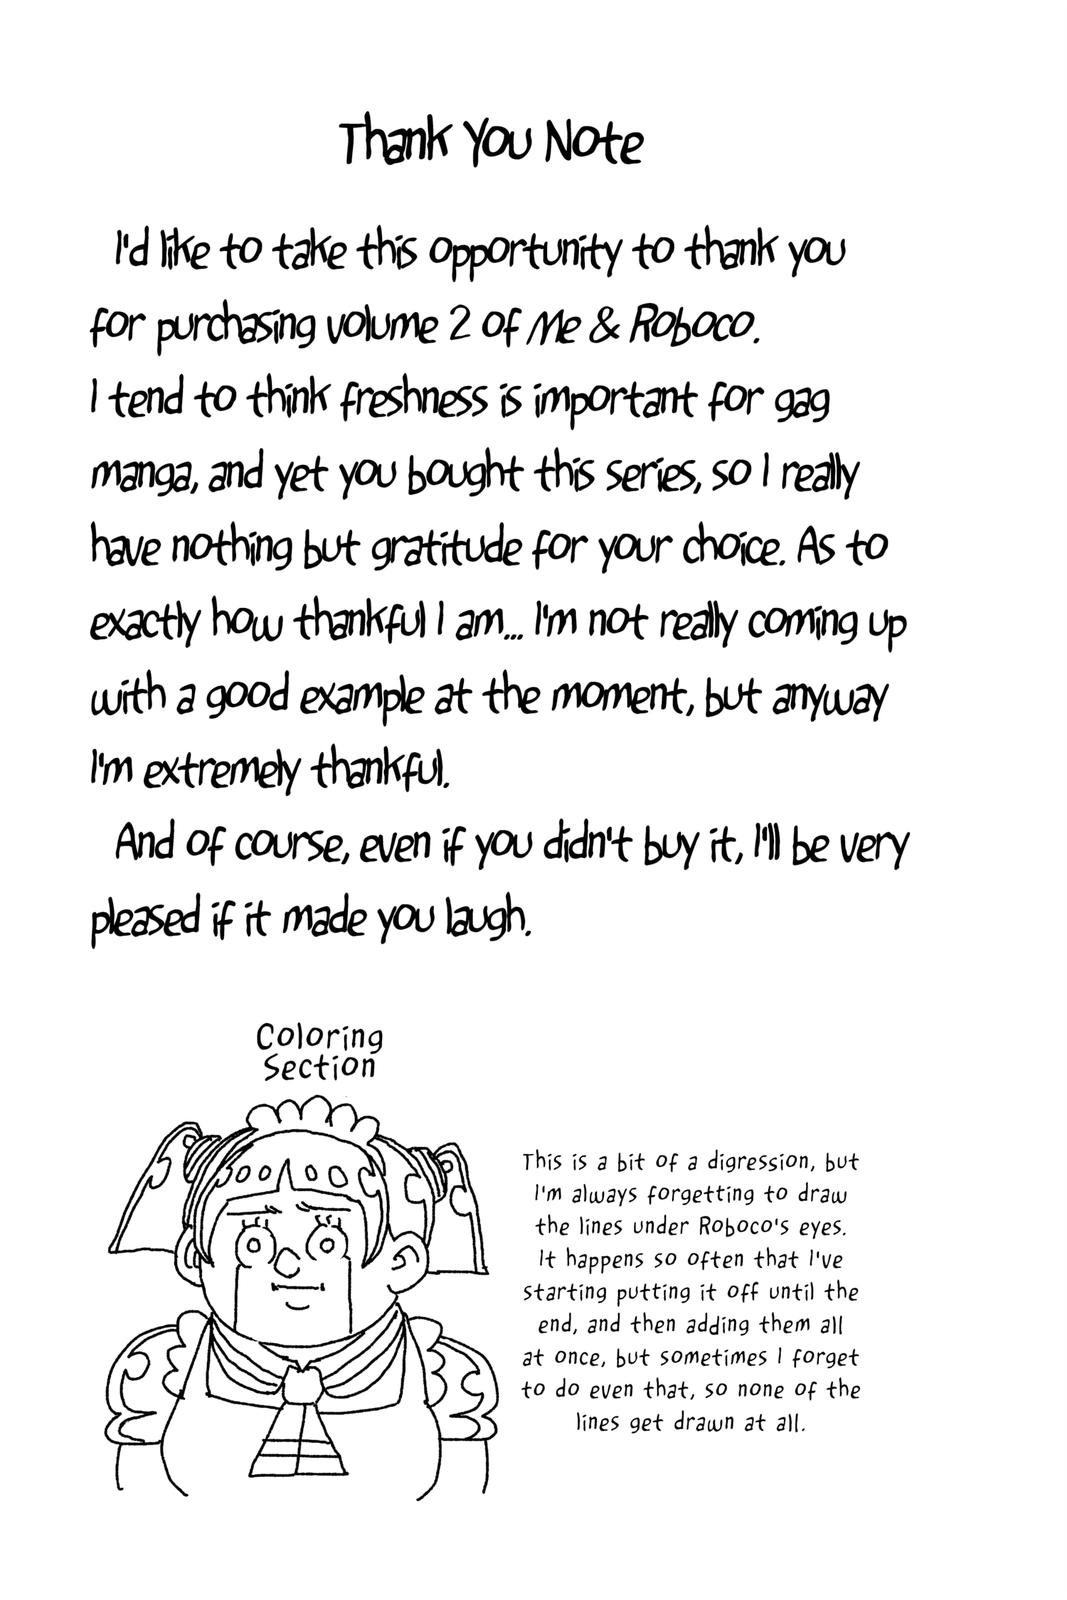 Thank You Note
I'd like to take this opportunity to thank you
for purchasing volume 2 of Me & Roboco.
I tend to think freshness is important for gag
manga, and yet you bought this series, so I really
have nothing but gratitude for your choice. As to
exactly how thankful I am... I'm not really coming up
with a good example at the moment, but anyway
I'm extremely thankful.
And of course, even if you didn't buy it, I'll be very
pleased if it made you laugh.
Coloring
Section
This is a bit of a digression, but
I'm always forgetting to draw
the lines under Roboco's eyes.
It happens so often that I've
starting putting it off until the
end, and then adding them all
at once, but sometimes I forget
to do even that, so none of the
lines get drawn at all.